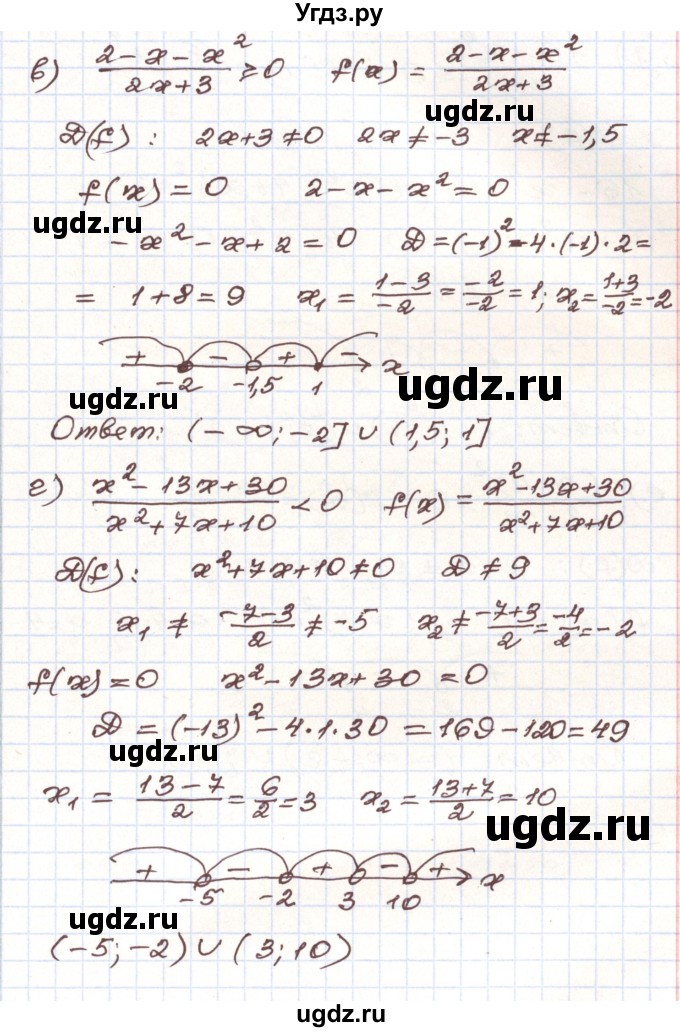 Угдз.ру
в) (2-x-x²)/(2x+3) ≥ 0 f(x) = (2-x-x²)/(2x+3)
ugdz.ru
D(f): 2x+3≠0 2x≠-3 x≠-1,5
f(x)=0 2-x-x²=0
ugdz.ru
-x²-x+2=0 D=(-1)²-4·(-1)·2=
= 1+8=9 x₁ = (1-3)/(-2) = (-2)/(-2) = 1; x₂ = (1+3)/(-2) = -2
+ - + - x
-2 -1,5 1
ugdz.ru ugdz.ru
Ответ: (-∞; -2] ∪ (1,5; 1]
г) (x²-13x+30)/(x²+7x+10) < 0 f(x) = (x²-13x+30)/(x²+7x+10)
ugdz.ru
D(f): x²+7x+10≠0 D≠9
x₁ ≠ (-7-3)/2 ≠ -5 x₂ ≠ (-7+3)/2 = (-4)/2 = -2
f(x)=0 x²-13x+30=0
D = (-13)²-4·1·30 = 169-120=49
ugdz.ru
x₁ = (13-7)/2 = 6/2 = 3 x₂ = (13+7)/2 = 10
ugdz.ru
+ - + - + x
-5 -2 3 10
ugdz.ru
(-5; -2) ∪ (3; 10)
ugdz.ru